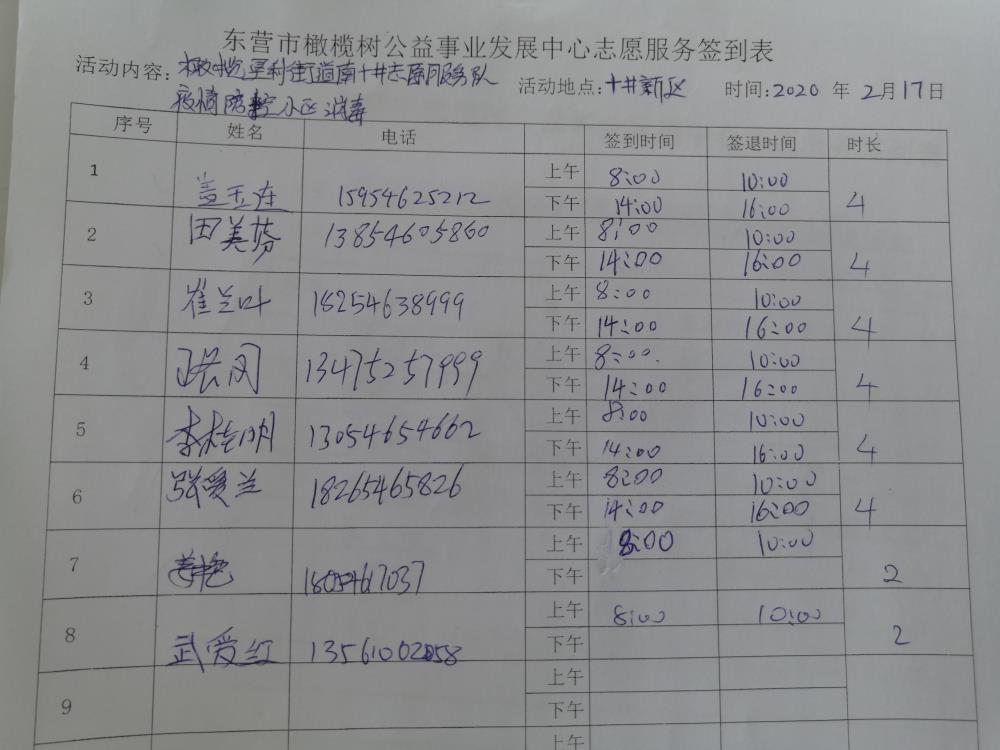 东营市橄榄树公益事业发展中心志愿服务签到表
活动内容：橄榄垦利街道南十井志愿服务队 活动地点：十井新区 时间：2020 年 2月17日
疫情防控小区消毒
序号 姓名 电话 签到时间 签退时间 时长
1 盖玉连 15954625212 上午 8:00 10:00 4
下午 14:00 16:00
2 田美芬 13854605860 上午 8:00 10:00 4
下午 14:00 16:00
3 崔兰叶 18254638999 上午 8:00 10:00 4
下午 14:00 16:00
4 13475257999 上午 8:00 10:00 4
下午 14:00 16:00
5 李桂明 13054654662 上午 8:00 10:00 4
下午 14:00 16:00
6 张爱兰 18265465826 上午 8:00 10:00 4
下午 14:00 16:00
7 上午 8:00 10:00 2
下午
8 武爱红 上午 8:00 10:00 2
下午
9 上午
下午
上午